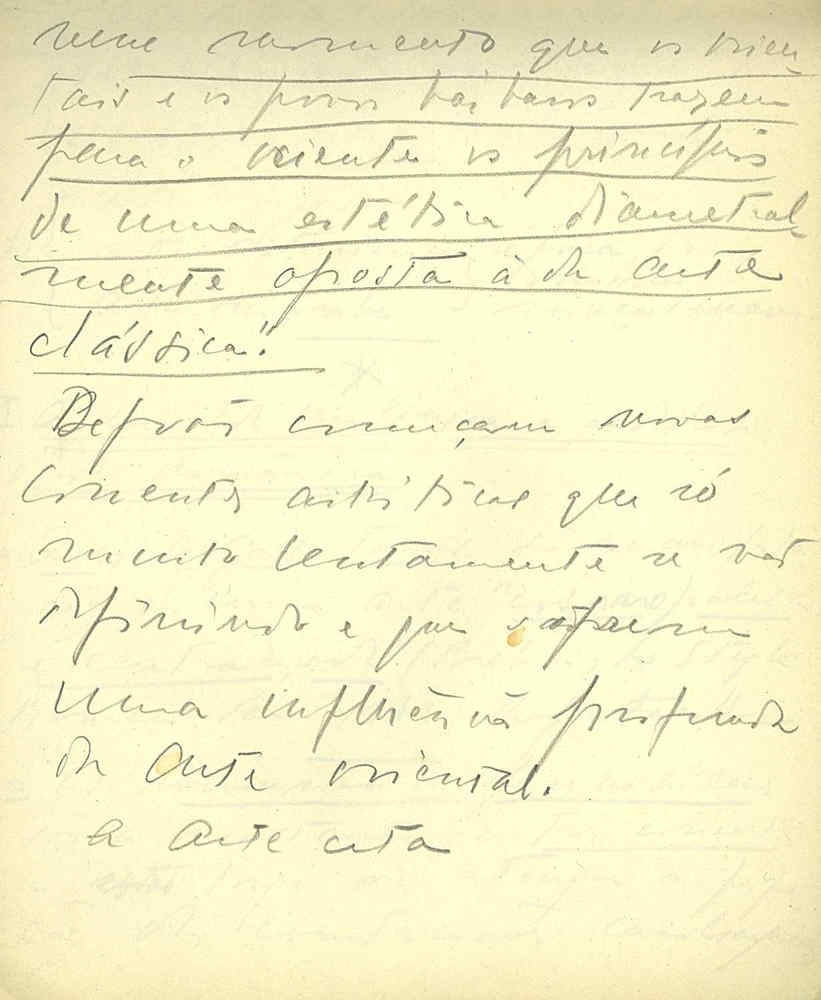 nesse momento que os orien
tais e os povos bárbaros trazem
para o ocidente os princípios
de uma estética diametral
mente oposta à da arte
clássica".
Depois começam novas
correntes artísticas que só
muito lentamente se vão
definindo e que sofrem
uma influência profunda
da arte oriental.
a arte